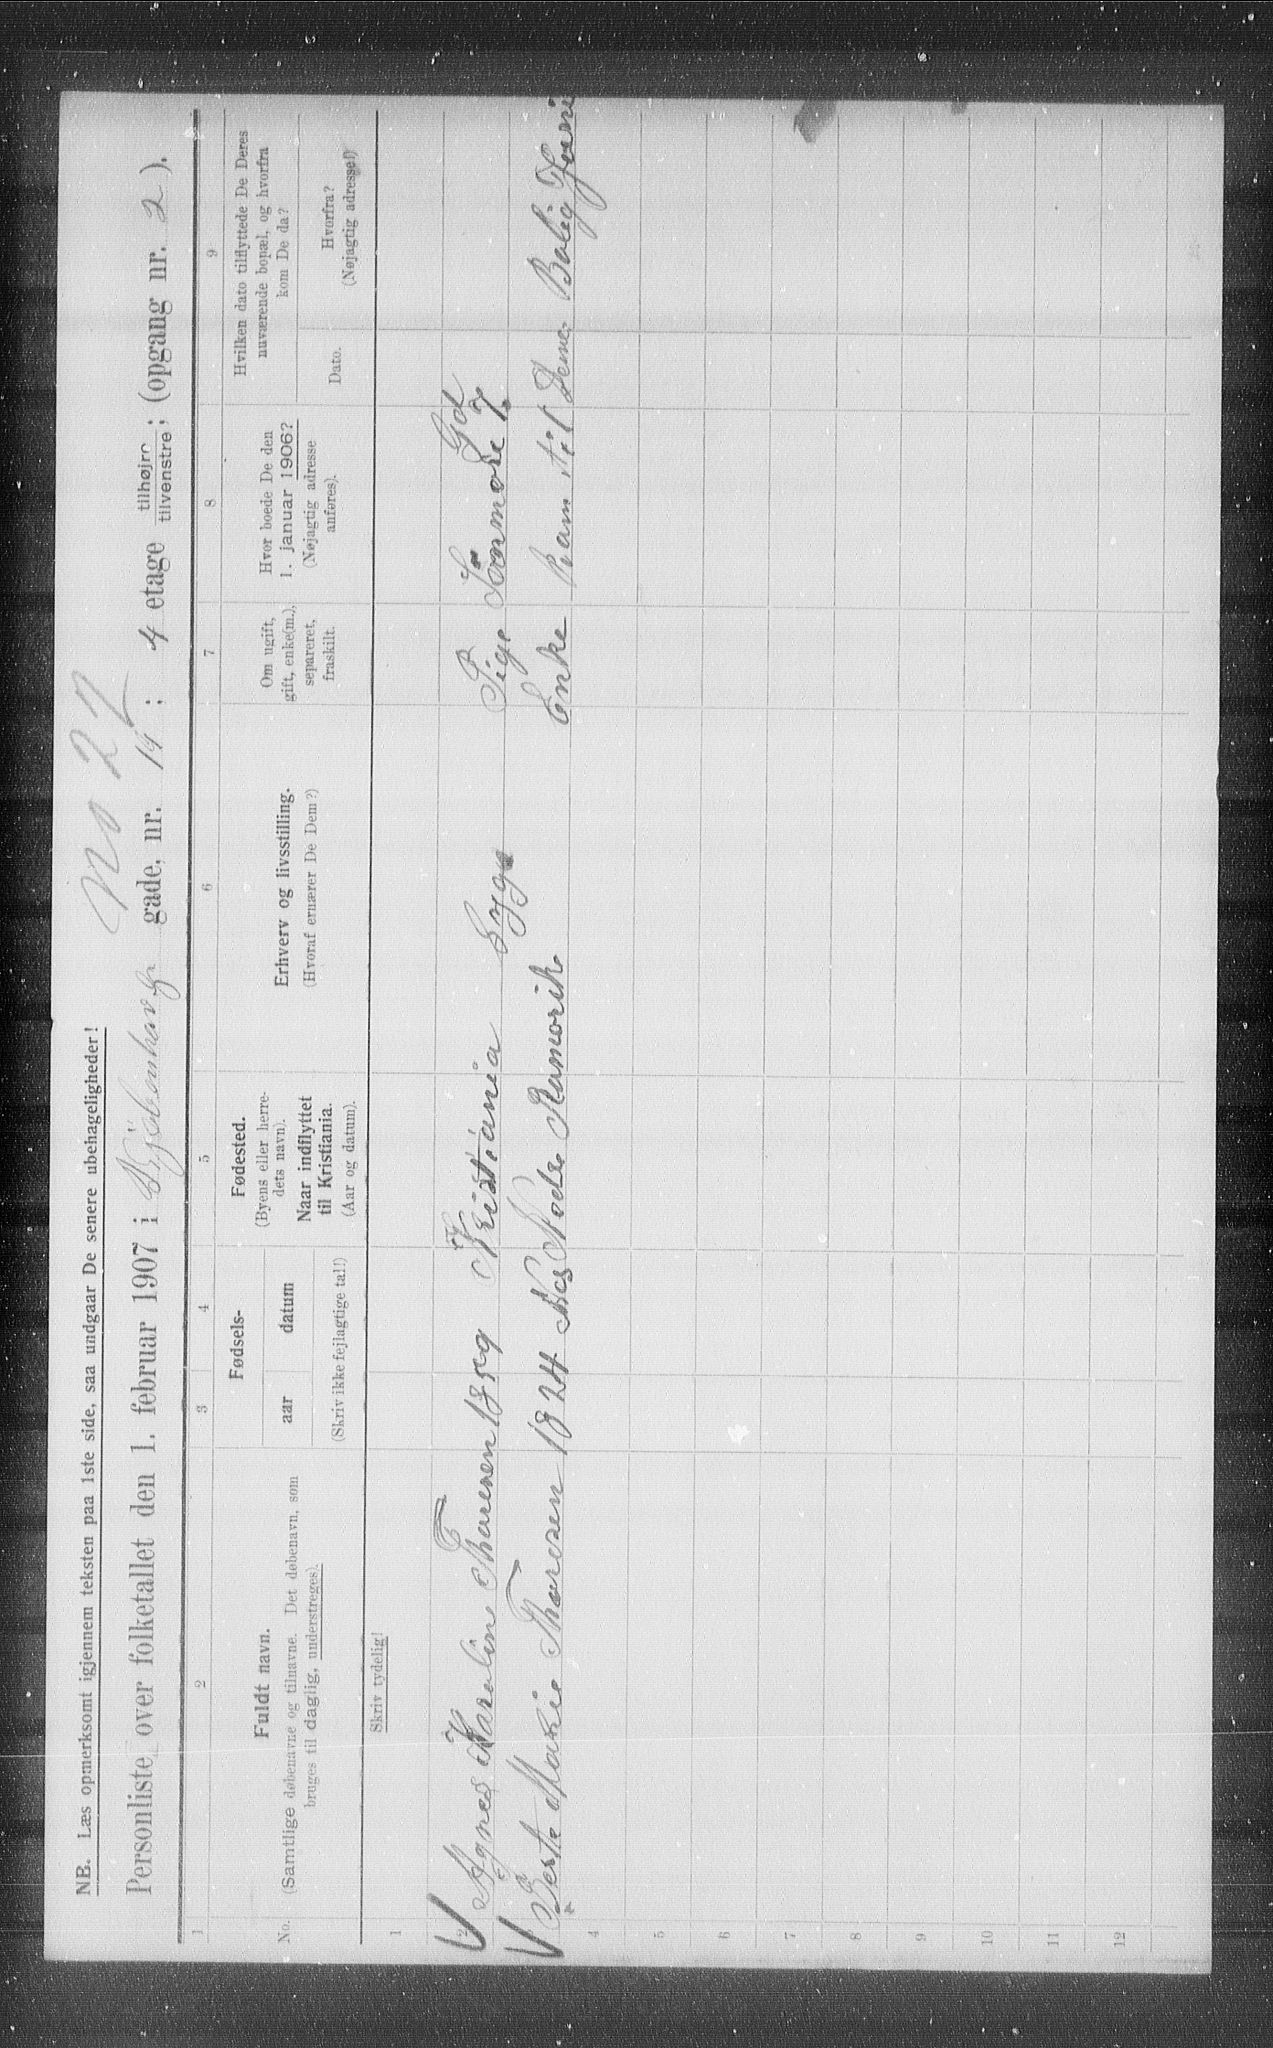 No 27
NB. Læs opmerksomt igjennem teksten paa 1ste side, saa undgaar De senere ubehageligheder!
Personliste over folketallet den 1. februar 1907 i Kjöbenhavg gade, nr. 14 ; 4 etage tilhøjre tilvenstre ; (opgang nr. 2 ).
1 2 3 4 5 6 7 8 9
No.
Fuldt navn.
(Samtlige døbenavne og tilnavne. Det døbenavn, som
bruges til daglig, understreges).
Fødsels-
aar datum
(Skriv ikke fejlagtige tal!)
Fødested.
(Byens eller herre-
dets navn).
Naar indflyttet
til Kristiania.
(Aar og datum).
Erhverv og livsstilling.
(Hvoraf ernærer De Dem?)
Om ugift,
gift, enke(m.),
separeret,
fraskilt.
Hvor boede De den
1. januar 1906?
(Nøjagtig adresse
anføres).
Hvilken dato tilflyttede De Deres
nuværende bopæl, og hvorfra
kom De da?
Dato.
Hvorfra?
(Nøjagtig adresse!)
Skriv tydelig!
1
2 Agnes Karelin Thoresen 1859 Kristiania Syge Pige Sannor 7 Gd
Berthe Marie Thoresen 1824 Nes Nedre Romerike Enke kam til Denne Bolig Juni
4
5
6
7
8
9
10
11
12